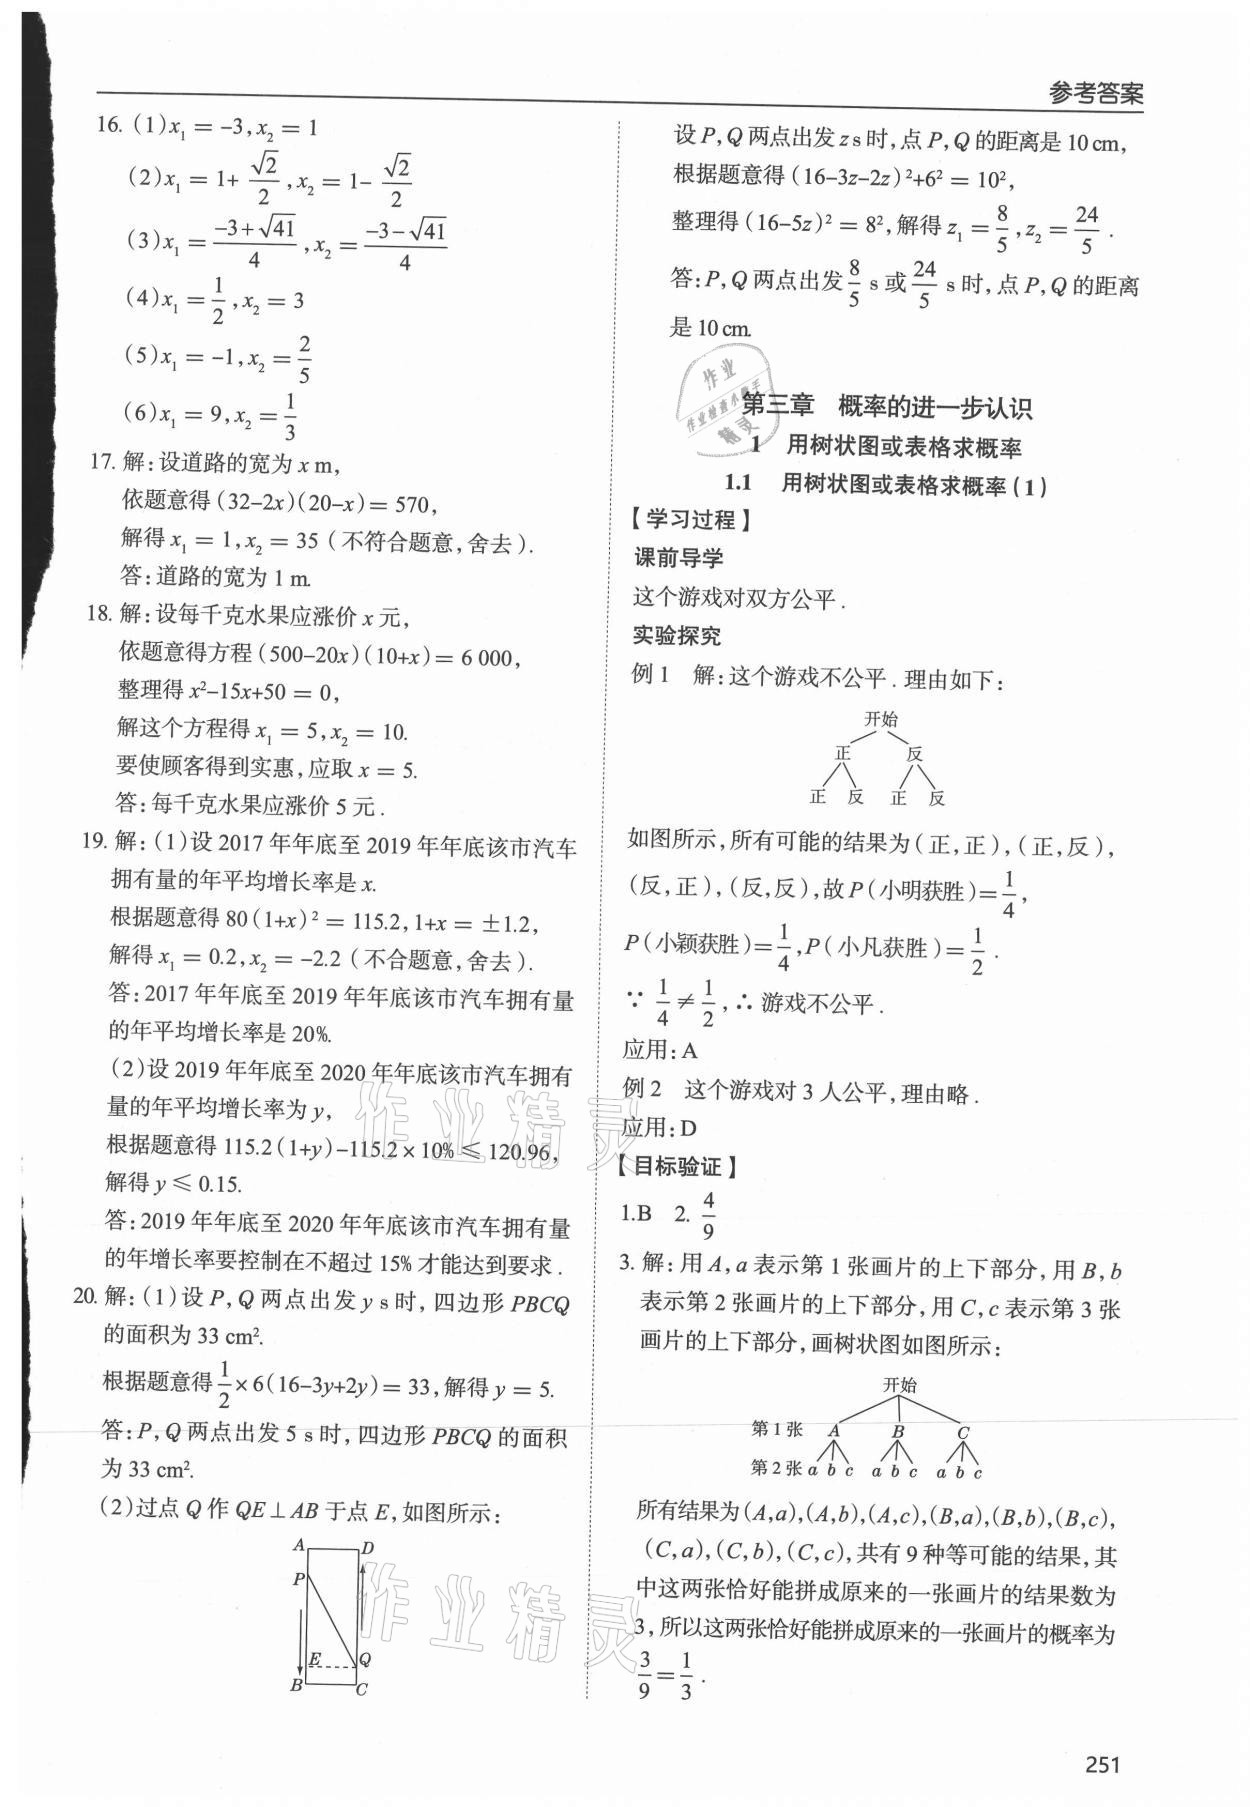 参考答案
16. (1)x₁ = -3,x₂ = 1
(2)x₁ = 1+ √2/2 ,x₂ = 1- √2/2
(3)x₁ = (-3+√41)/4 ,x₂ = (-3-√41)/4
(4)x₁ = 1/2 ,x₂ = 3
(5)x₁ = -1,x₂ = 2/5
(6)x₁ = 9,x₂ = 1/3
17. 解:设道路的宽为 x m,
依题意得(32-2x)(20-x)= 570,
解得 x₁ = 1,x₂ = 35 (不符合题意,舍去).
答:道路的宽为 1 m.
18. 解:设每千克水果应涨价 x 元,
依题意得方程(500-20x)(10+x)= 6 000,
整理得 x²-15x+50 = 0,
解这个方程得 x₁ = 5,x₂ = 10.
要使顾客得到实惠,应取 x = 5.
答:每千克水果应涨价 5 元.
19. 解:(1)设 2017 年年底至 2019 年年底该市汽车
拥有量的年平均增长率是 x.
根据题意得 80(1+x)² = 115.2,1+x = ±1.2,
解得 x₁ = 0.2,x₂ = -2.2 (不合题意,舍去).
答:2017 年年底至 2019 年年底该市汽车拥有量
的年平均增长率是 20%.
(2)设 2019 年年底至 2020 年年底该市汽车拥有
量的年平均增长率为 y,
根据题意得 115.2(1+y)-115.2×10% ≤ 120.96,
解得 y ≤ 0.15.
答:2019 年年底至 2020 年年底该市汽车拥有量
的年增长率要控制在不超过 15% 才能达到要求.
20. 解:(1)设 P,Q 两点出发 y s 时,四边形 PBCQ
的面积为 33 cm².
根据题意得 1/2 ×6(16-3y+2y)= 33,解得 y = 5.
答:P,Q 两点出发 5 s 时,四边形 PBCQ 的面积
为 33 cm².
(2)过点 Q 作 QE⊥AB 于点 E,如图所示:
A D
P
E Q
B C
设 P,Q 两点出发 z s 时,点 P,Q 的距离是 10 cm,
根据题意得(16-3z-2z)²+6² = 10²,
整理得(16-5z)² = 8²,解得 z₁ = 8/5 ,z₂ = 24/5 .
答:P,Q 两点出发 8/5 s 或 24/5 s 时,点 P,Q 的距离
是 10 cm.
作业
作业检查小能手
精灵
第三章 概率的进一步认识
1 用树状图或表格求概率
1.1 用树状图或表格求概率(1)
【学习过程】
课前导学
这个游戏对双方公平.
实验探究
例 1 解:这个游戏不公平.理由如下:
开始
正 反
正 反 正 反
如图所示,所有可能的结果为(正,正),(正,反),
(反,正),(反,反),故 P(小明获胜)= 1/4 ,
P(小颖获胜)= 1/4 ,P(小凡获胜)= 1/2 .
∵ 1/4 ≠ 1/2 ,∴ 游戏不公平.
应用:A
例 2 这个游戏对 3 人公平,理由略.
应用:D
【目标验证】
1.B 2. 4/9
3. 解:用 A,a 表示第 1 张画片的上下部分,用 B,b
表示第 2 张画片的上下部分,用 C,c 表示第 3 张
画片的上下部分,画树状图如图所示:
开始
第 1 张 A B C
第 2 张 a b c a b c a b c
所有结果为(A,a),(A,b),(A,c),(B,a),(B,b),(B,c),
(C,a),(C,b),(C,c),共有 9 种等可能的结果,其
中这两张恰好能拼成原来的一张画片的结果数为
3,所以这两张恰好能拼成原来的一张画片的概率为
3/9 = 1/3 .
作业精灵
作业精灵
251